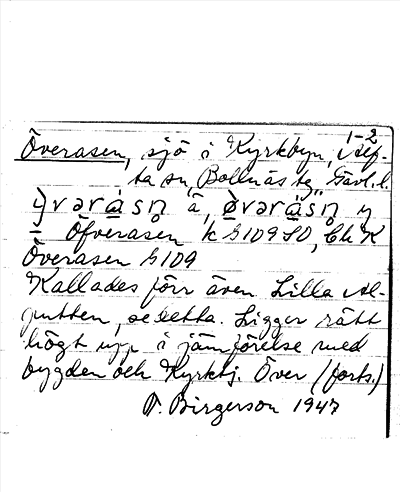 1-2
Överasen, sjö i Kyrkbyn, Alf-
ta sn, Bollnäs tg, Gävl. l.
y̠vərásn̥ ä, ø̠vərásn̥ y
Öfverasen k G109 SO, Ek K
Överasen G109
Kallades förr även Lilla Al-
putten, se detta. Ligger rätt
högt upp i jämförelse med
bygden och Kyrksj. Över (forts.)
F. Birgerson 1947